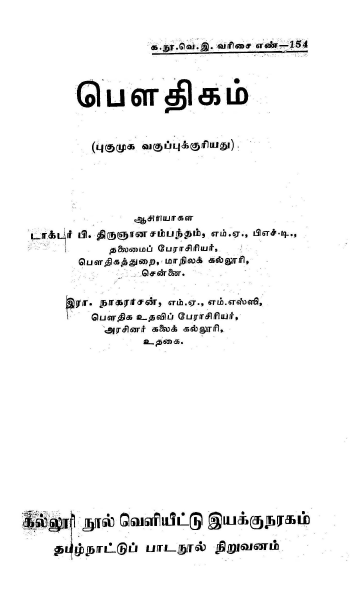 க.நூ.வெ.இ. வரிசை எண்—154
பௌதிகம்
(புகுமுக வகுப்புக்குரியது)
ஆசிரியர்கள்
டாக்டர் பி. திருஞானசம்பந்தம், எம்.ஏ., பிஎச்.டி.,
தலைமைப் பேராசிரியர்,
பௌதிகத்துறை, மாநிலக் கல்லூரி,
சென்னை.
இரா. நாகரசன், எம்.ஏ., எம்.எஸ்ஸி,
பௌதிக உதவிப் பேராசிரியர்,
அரசினர் கலைக் கல்லூரி,
உதகை.
கல்லூரி நூல் வெளியீட்டு இயக்குநரகம்
தமிழ்நாட்டுப் பாடநூல் நிறுவனம்